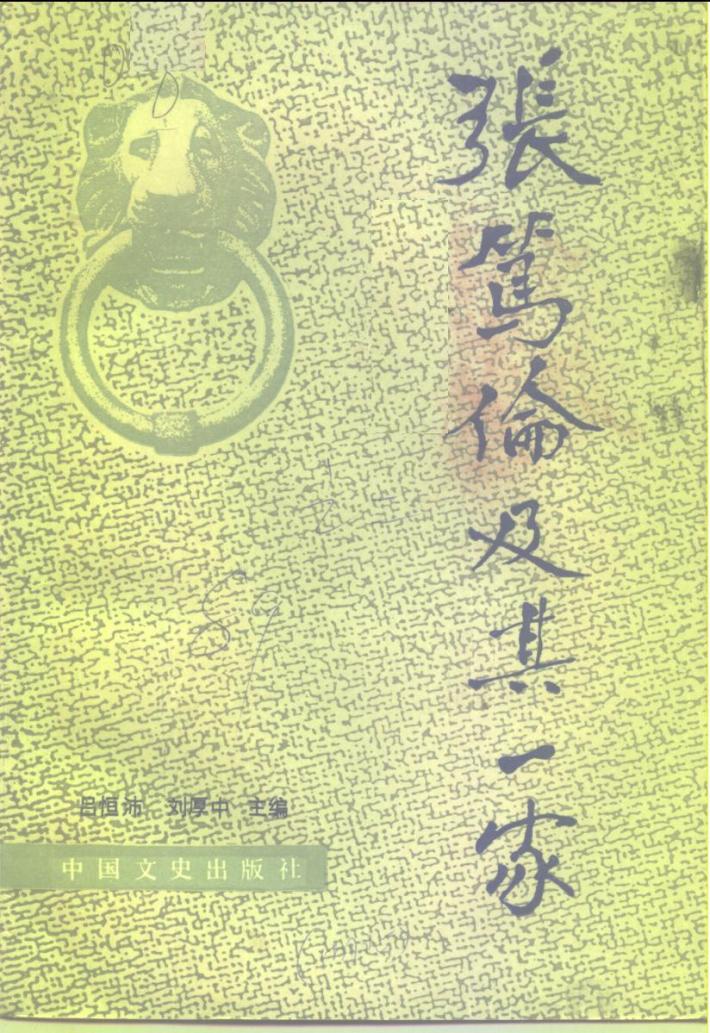 張篤倫及其一家
吕恒沛 刘厚中 主编
中国文史出版社
89